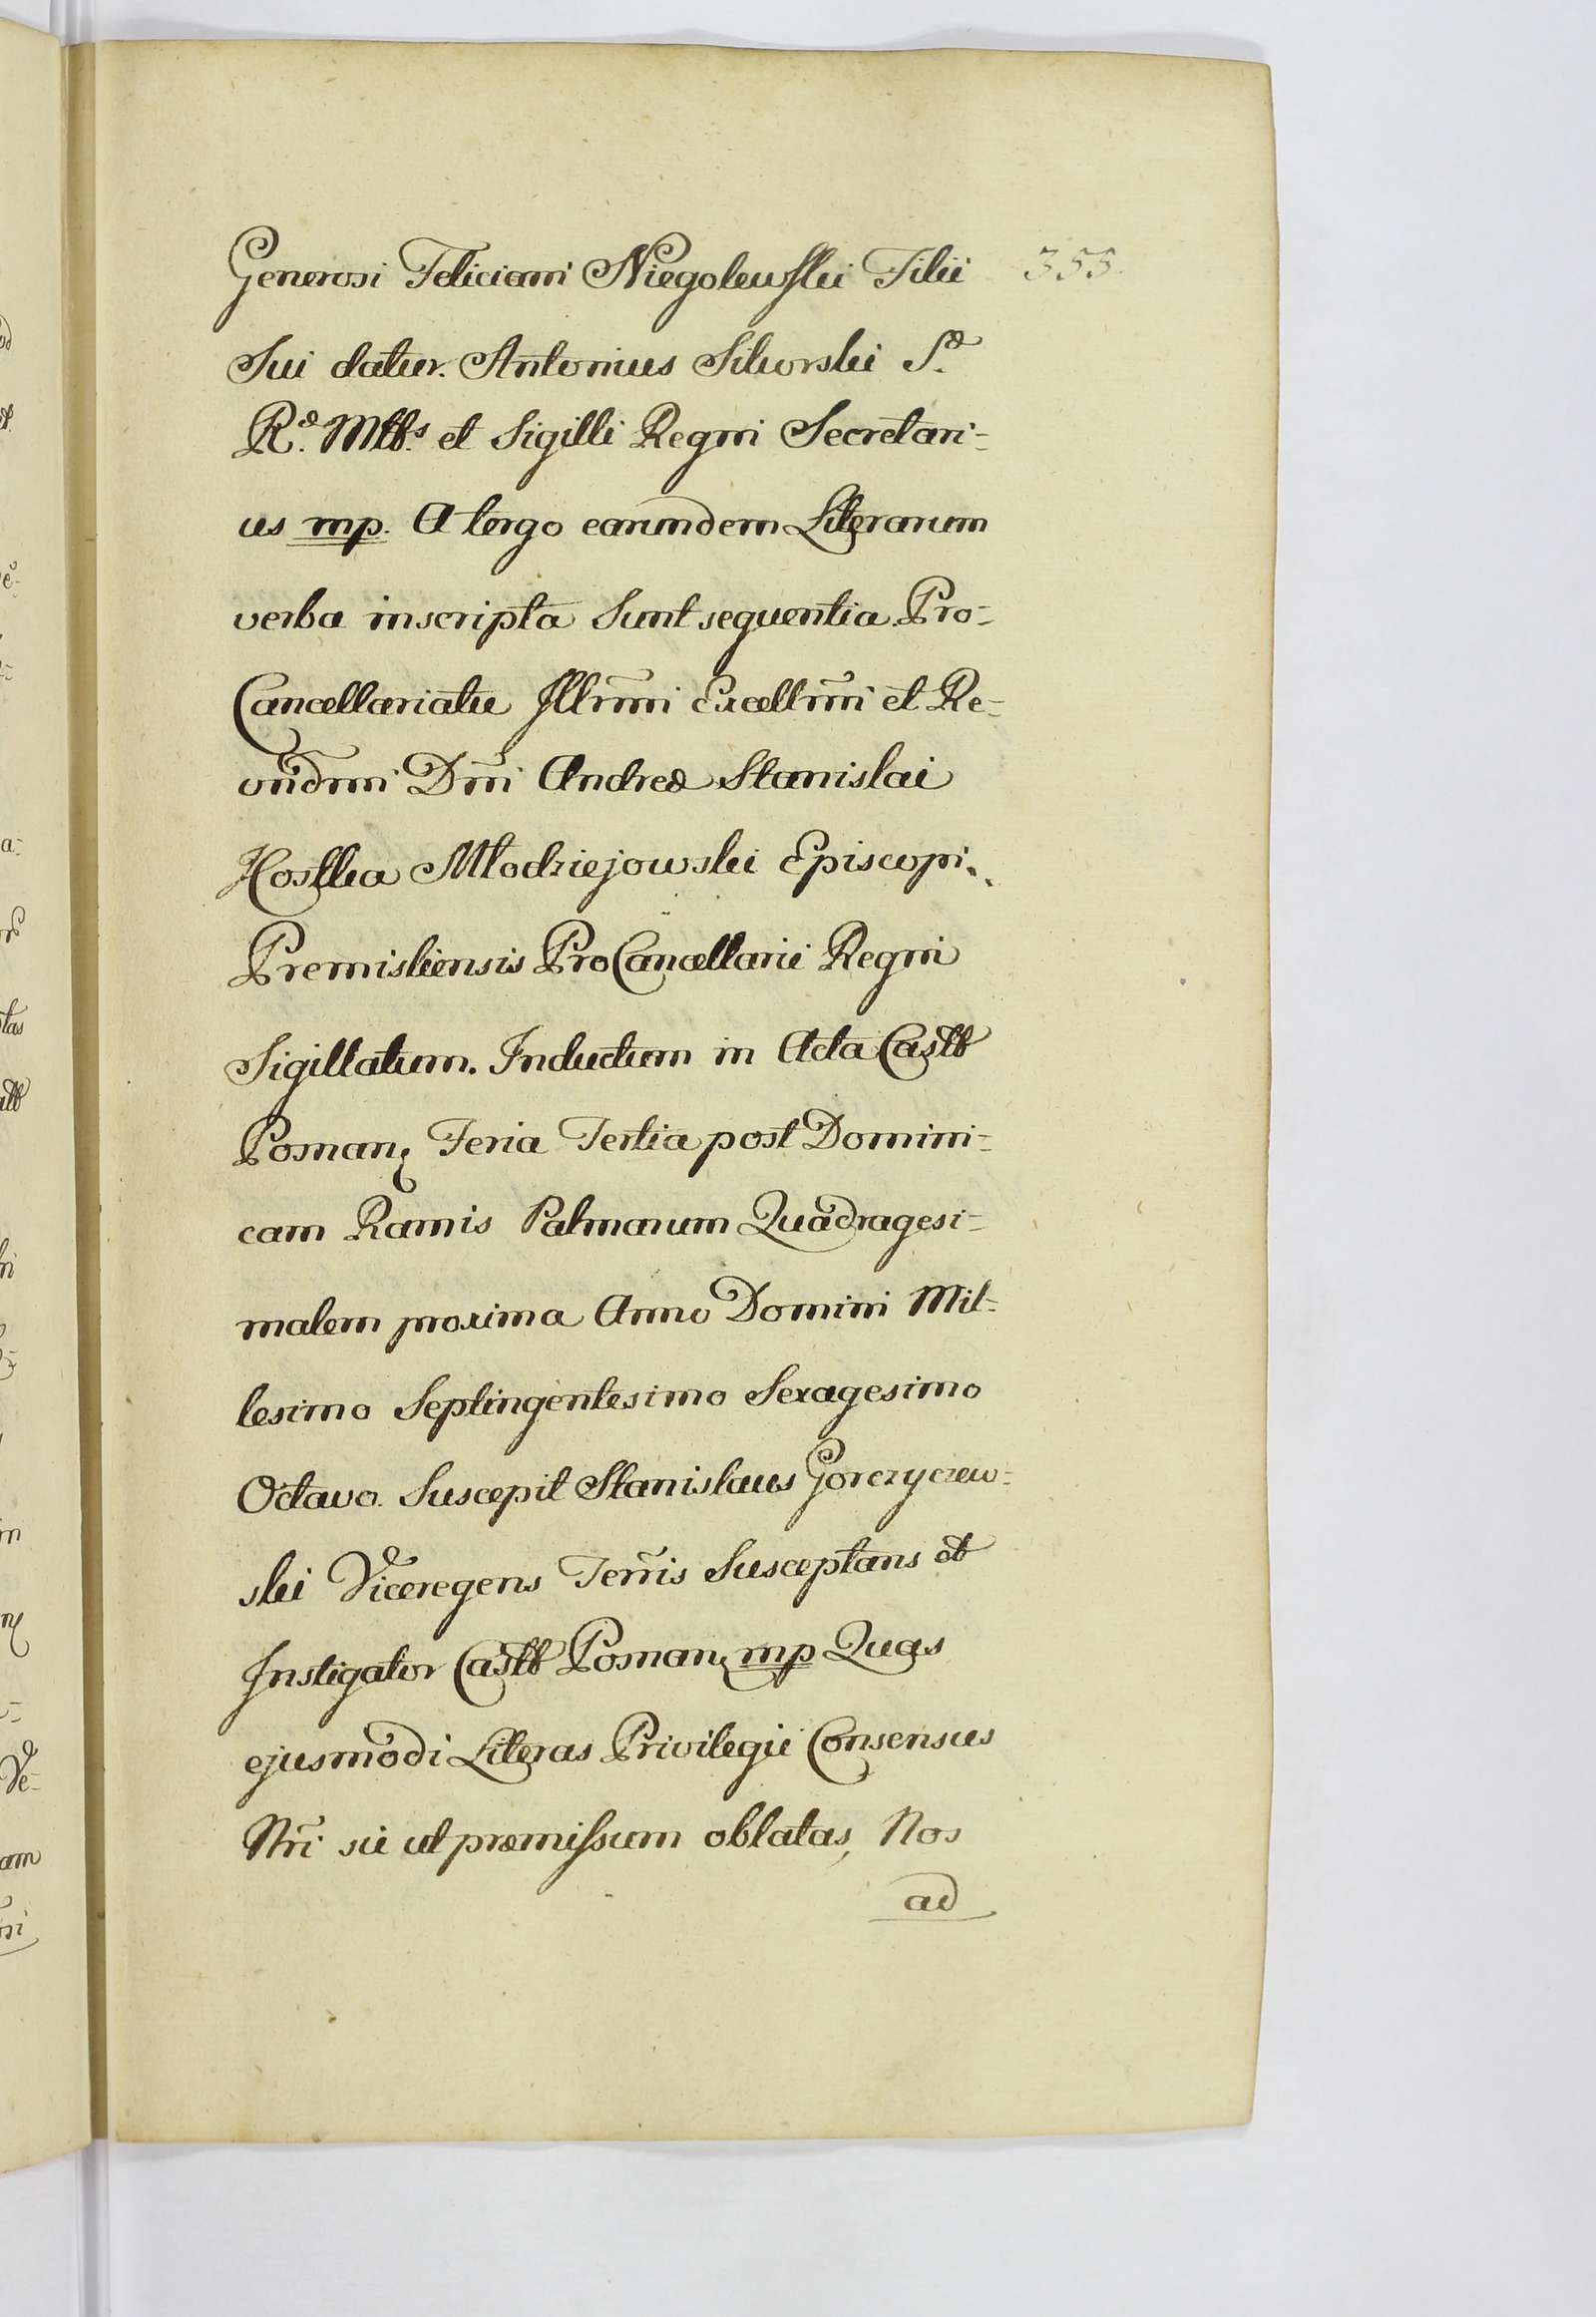 Generosi Feliciani Niegolewski Filii 353.
Sui datur. Antonius Sikorski S.æ
R.æ Mtts et Sigilli Regni Secretari-
us mp. A tergo earundem Literarum
verba inscripta sunt sequentia. Pro-
Cancellariatu Illrmi Excellmi et Re-
vndmi Dni Andreæ Stanislai
Kostka Młodziejowski Episcopi
Premisliensis ProCancellarii Regni
Sigillatum. Inductum in Acta Castr
Posnan. Feria Tertia post Domini-
cam Ramis Palmarum Quadragesi-
malem proxima Anno Domini Mil-
lesimo Septingentesimo Sexagesimo
Octavo. Suscepit Stanislaus Gorczyczew-
ski Viceregens Terris Susceptans et
Instigator Castr Posnan. mp Quas
ejusmodi Literas Privilegii Consensus
Nri sic ut præmissum oblatas, Nos
ad